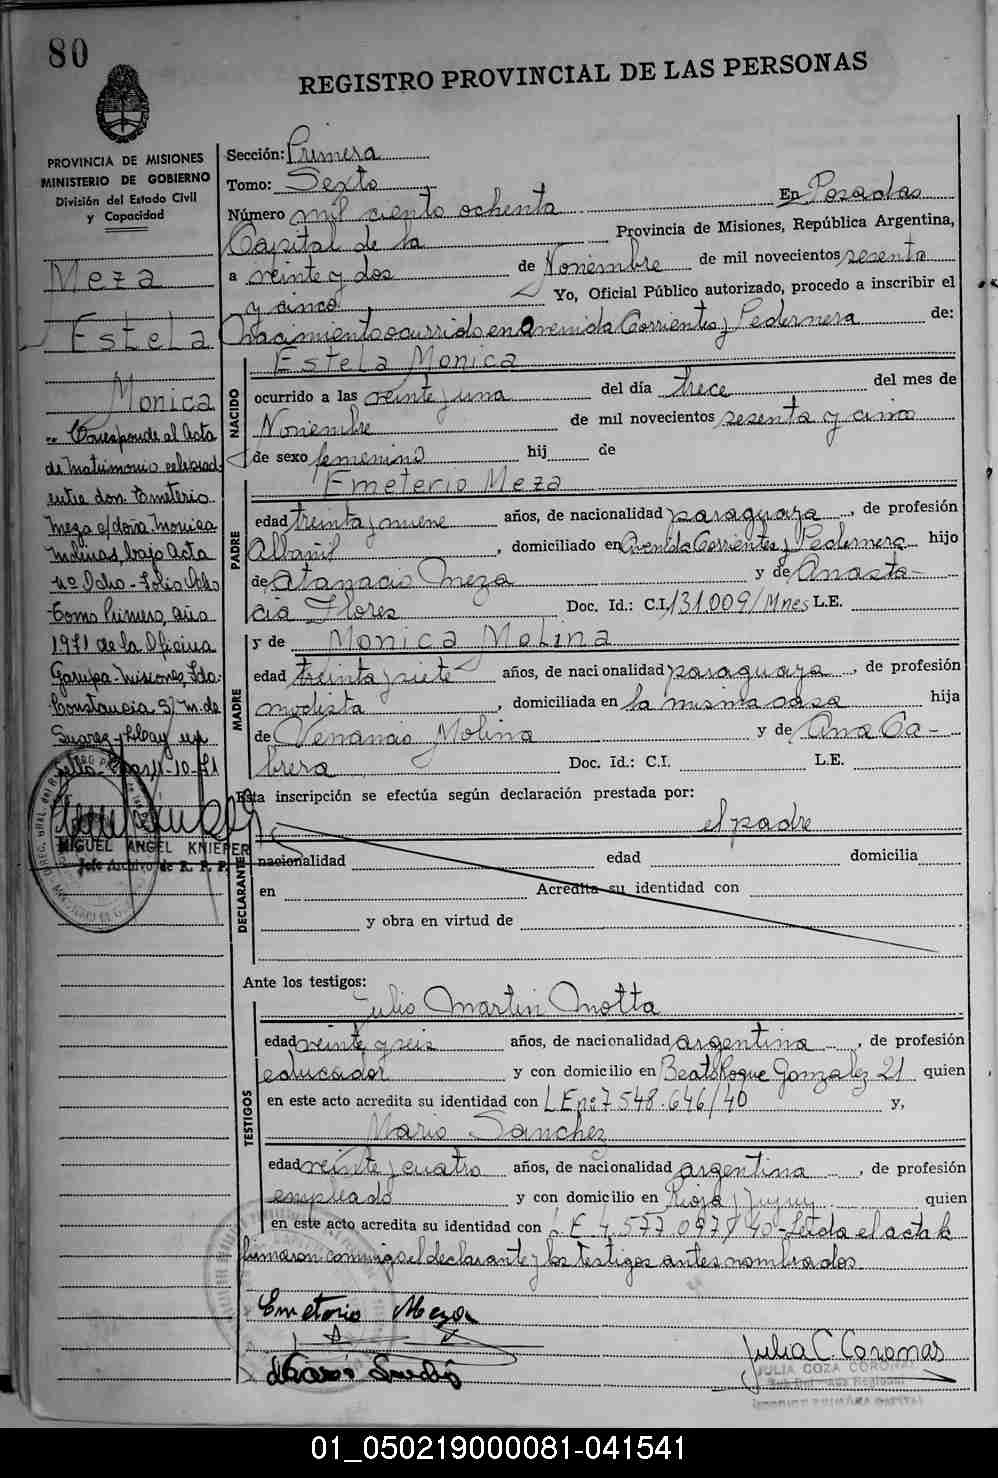 80
REGISTRO PROVINCIAL DE LAS PERSONAS
PROVINCIA DE MISIONES
MINISTERIO DE GOBIERNO
División del Estado Civil
y Capacidad
Meza
Estela
Monica
Corresponde al Acta
de Matrimonio celebrad
entre don Emeterio
Meza c/doña Monica
Molinas, bajo Acta
nº Ocho - Folio Ocho
Tomo Primero, año
1971 de la Oficina
Garupa - Misiones, Fdo.
Constancia S/ M. de
Suarez y Hay un
sello - 10-71
MIGUEL ANGEL KNIEPER
Jefe Archivo de R. P. P.
Sección: Primera
Tomo: Sexto
Número mil ciento ochenta En Posadas
Capital de la Provincia de Misiones, República Argentina,
a veinte y dos de Noviembre de mil novecientos sesenta
y cinco Yo, Oficial Público autorizado, procedo a inscribir el
Nacimiento ocurrido en Avenida Corrientes y Pedernera de:
NACIDO
Estela Monica
ocurrido a las veinte y una del día trece del mes de
Noviembre de mil novecientos sesenta y cinco
de sexo femenino hij de
PADRE
Emeterio Meza
edad treinta y nueve años, de nacionalidad paraguaya, de profesión
Albañil, domiciliado en Avenida Corrientes y Pedernera hijo
de Atanacio Meza y de Anasta-
cia Flores Doc. Id.: C.I. 131.009/Mnes L.E.
MADRE
y de Monica Molina
edad treinta y siete años, de nacionalidad paraguaya, de profesión
modista, domiciliada en la misma casa hija
de Venancio Molina y de Ana Ca-
brera Doc. Id.: C.I. L.E.
Esta inscripción se efectúa según declaración prestada por:
el padre
DECLARANTE
nacionalidad edad domicilia
en Acredita su identidad con
y obra en virtud de
Ante los testigos:
TESTIGOS
Julio Martin Motta
edad veinte y seis años, de nacionalidad argentina, de profesión
educador y con domicilio en Beato Roque Gonzalez 21 quien
en este acto acredita su identidad con L E nº 7 548.646/40 y,
Mario Sanchez
edad veinte y cuatro años, de nacionalidad argentina, de profesión
empleado y con domicilio en Rioja y Jujuy quien
en este acto acredita su identidad con L E 4.577.097/40 - Leida el acta la
firmaron conmigo el declarante y los testigos antes nombrados
Emeterio Meza
Mario Sanchez
Julia C. Coronas
JULIA COZA CORONAS
01_050219000081-041541